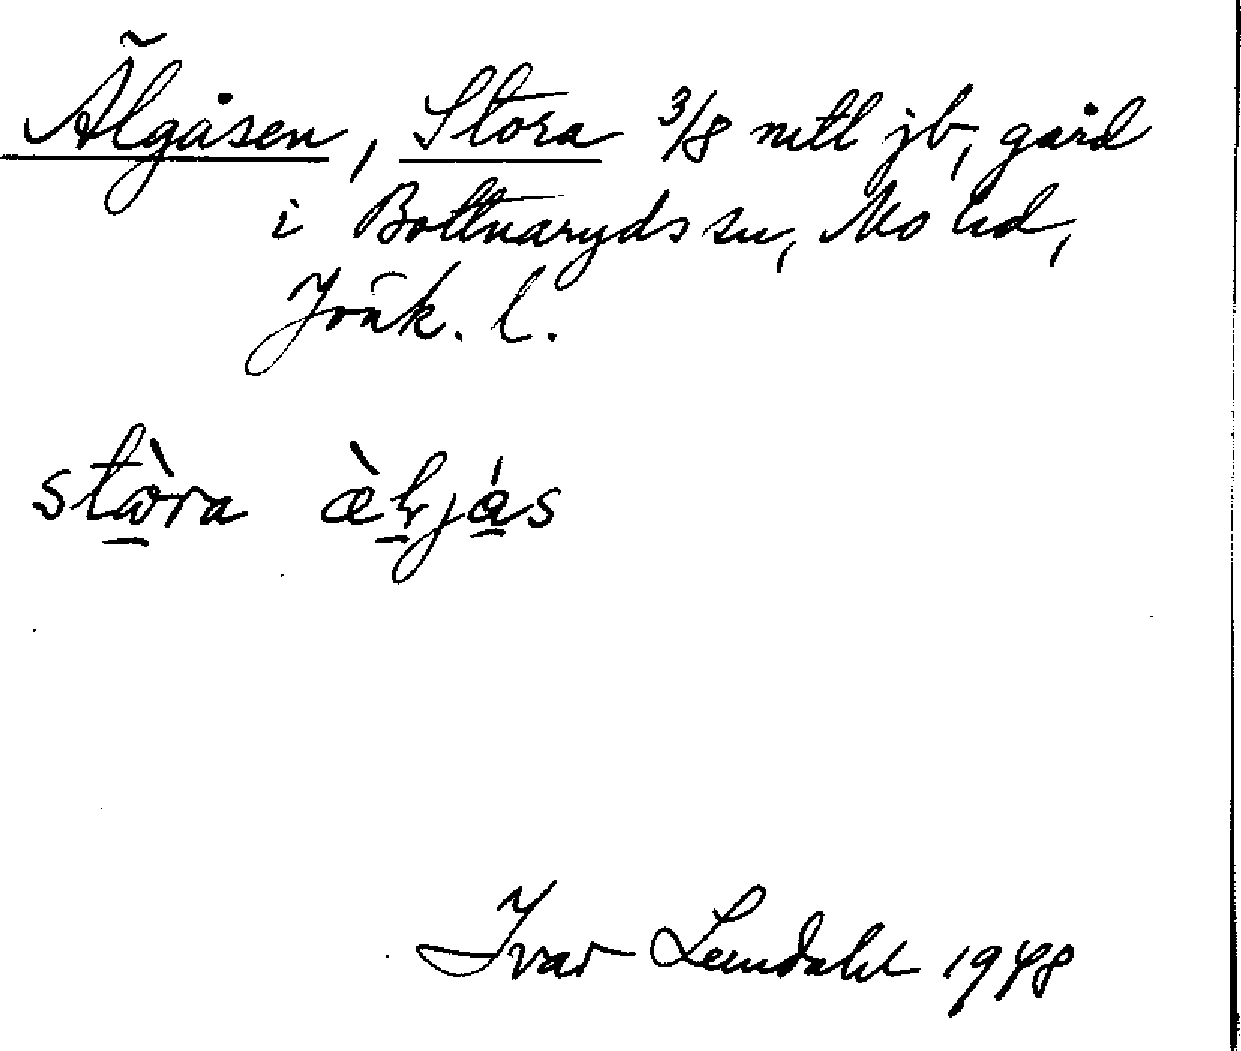 Älgåsen, Stora 3/8 mtl jb, gård
i Bottnaryds sn, Mo hd,
Jönk. l.
Ivar Lundahl 1948